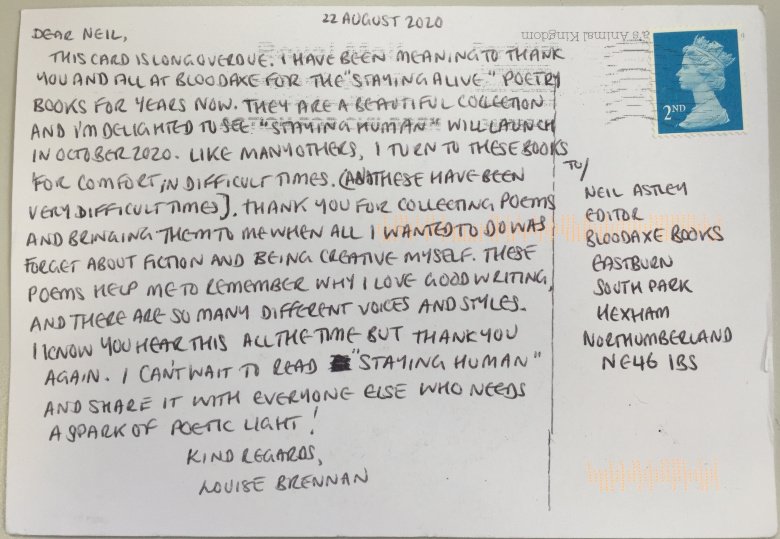 22 AUGUST 2020
DEAR NEIL,
THIS CARD IS LONG OVERDUE. I HAVE BEEN MEANING TO THANK
YOU AND ALL AT BLOODAXE FOR THE "STAYING ALIVE" POETRY
BOOKS FOR YEARS NOW. THEY ARE A BEAUTIFUL COLLECTION
AND I'M DELIGHTED TO SEE "STAYING HUMAN" WILL LAUNCH
IN OCTOBER 2020. LIKE MANY OTHERS, I TURN TO THESE BOOKS
FOR COMFORT IN DIFFICULT TIMES. (AND THESE HAVE BEEN
VERY DIFFICULT TIMES). THANK YOU FOR COLLECTING POEMS
AND BRINGING THEM TO ME WHEN ALL I WANTED TO DO WAS
FORGET ABOUT FICTION AND BEING CREATIVE MYSELF. THESE
POEMS HELP ME TO REMEMBER WHY I LOVE GOOD WRITING,
AND THERE ARE SO MANY DIFFERENT VOICES AND STYLES.
I KNOW YOU HEAR THIS ALL THE TIME BUT THANK YOU
AGAIN. I CAN'T WAIT TO READ "STAYING HUMAN"
AND SHARE IT WITH EVERYONE ELSE WHO NEEDS
A SPARK OF POETIC LIGHT!
KIND REGARDS,
LOUISE BRENNAN
's Animal Kingdom
2ND
TO/
NEIL ASTLEY
EDITOR
BLOODAXE BOOKS
EASTBURN
SOUTH PARK
HEXHAM
NORTHUMBERLAND
NE46 1BS